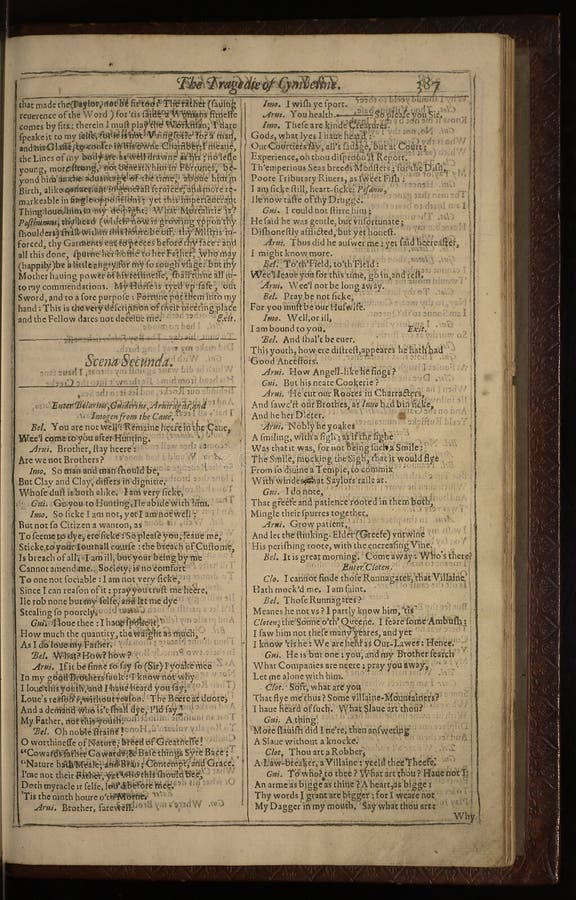 The Tragedie of Cymbeline. 387
that made the Taylor, not be fit too? The rather (sauing
reuerence of the Word) for 'tis saide a Womans fitnesse
comes by fits: therein I must play the Workman, I dare
speake it to my selfe, for it is not Vainglorie for a man,
and his Glasse, to confer in his owne Chamber; I meane,
the Lines of my body are as well drawne as his; no lesse
young, more strong, not beneath him in Fortunes, be-
yond him in the aduantage of the time, aboue him in
Birth, alike conuersant in generall seruices, and more re-
markeable in single oppositions; yet this imperseuerant
Thing loues him in my despight. What Mortalitie is?
Posthumus, thy head (which now is growing vppon thy
shoulders) shall within this houre be off, thy Mistris in-
forced, thy Garments cut to peeces before thy face: and
all this done, spurne her home to her Father, who may
(happily) be a little angry for my so rough vsage: but my
Mother hauing power of his testinesse, shall turne all in-
to my commendations. My Horse is tyed vp safe, out
Sword, and to a sore purpose: Fortune put them into my
hand: This is the very description of their meeting place
and the Fellow dares not deceiue me. Exit.
Scena Secunda.
Enter Belarius, Guiderius, Aruiragus, and
Imogen from the Caue.
Bel. You are not well: Remaine heere in the Caue,
Wee'l come to you after Hunting.
Arui. Brother, stay heere:
Are we not Brothers?
Imo. So man and man should be,
But Clay and Clay, differs in dignitie,
Whose dust is both alike. I am very sicke,
Gui. Go you to Hunting, Ile abide with him.
Imo. So sicke I am not, yet I am not well:
But not so Citizen a wanton, as
To seeme to dye, ere sicke: So please you, leaue me,
Sticke to your Iournall course: the breach of Custome,
Is breach of all. I am ill, but your being by me
Cannot amend me. Society, is no comfort
To one not sociable: I am not very sicke,
Since I can reason of it: pray you trust me heere,
Ile rob none but my selfe, and let me dye
Stealing so poorely.
Gui. I loue thee: I haue spoke it,
How much the quantity, the waight as much,
As I do loue my Father.
Bel. What? How? how?
Arui. If it be sinne to say so (Sir) I yoake mee
In my good Brothers fault: I know not why
I loue this youth, and I haue heard you say,
Loue's reason's, without reason. The Beere at doore,
And a demand who is't shall dye, I'ld say
My Father, not this youth.
Bel. Oh noble straine!
O worthinesse of Nature, breed of Greatnesse!
"Cowards father Cowards, & Base things Syre Bace;
"Nature hath Meale, and Bran; Contempt, and Grace.
I'me not their Father, yet who this should bee,
Doth myracle it selfe, lou'd before mee.
'Tis the ninth houre o'th'Morne.
Arui. Brother, farewell.
Imo. I wish ye sport.
Arui. You health.—— So please you Sir.
Imo. These are kinde Creatures.
Gods, what lyes I haue heard:
Our Courtiers say, all's sauage, but at Court;
Experience, oh thou disproou'st Report.
Th'emperious Seas breeds Monsters; for the Dish,
Poore Tributary Riuers, as sweet Fish:
I am sicke still, heart-sicke; Pisanio,
Ile now taste of thy Drugge.
Gui. I could not stirre him:
He said he was gentle, but vnfortunate;
Dishonestly afflicted, but yet honest.
Arui. Thus did he answer me: yet said heereafter,
I might know more.
Bel. To'th'Field, to'th'Field:
Wee'l leaue you for this time, go in, and rest.
Arui. Wee'l not be long away.
Bel. Pray be not sicke,
For you must be our Huswife.
Imo. Well, or ill,
I am bound to you. Exit.
Bel. And shal't be euer.
This youth, how ere distrest, appeares he hath had
Good Ancestors.
Arui. How Angell-like he sings?
Gui. But his neate Cookerie?
Arui. He cut our Rootes in Charracters,
And sawc'st our Brothes, as Iuno had bin sicke,
And he her Dieter.
Arui. Nobly he yoakes
A smiling, with a sigh; as if the sighe
Was that it was, for not being such a Smile:
The Smile, mocking the Sigh, that it would flye
From so diuine a Temple, to commix
With windes, that Saylors raile at.
Gui. I do note,
That greefe and patience rooted in them both,
Mingle their spurres together.
Arui. Grow patient,
And let the stinking-Elder (Greefe) vntwine
His perishing roote, with the encreasing Vine.
Bel. It is great morning. Come away: Who's there?
Enter Cloten.
Clo. I cannot finde those Runnagates, that Villaine
Hath mock'd me. I am faint.
Bel. Those Runnagates?
Meanes he not vs? I partly know him, 'tis
Cloten, the Sonne o'th'Queene. I feare some Ambush:
I saw him not these many yeares, and yet
I know 'tis he: We are held as Out-Lawes: Hence.
Gui. He is but one: you, and my Brother search
What Companies are neere: pray you away,
Let me alone with him.
Clot. Soft, what are you
That flye me thus? Some villaine-Mountainers?
I haue heard of such. What Slaue art thou?
Gui. A thing
More slauish did I ne're, then answering
A Slaue without a knocke.
Clot. Thou art a Robber,
A Law-breaker, a Villaine: yeeld thee Theefe.
Gui. To who? to thee? What art thou? Haue not I
An arme as bigge as thine? A heart, as bigge:
Thy words I grant are bigger: for I weare not
My Dagger in my mouth. Say what thou art:
Why